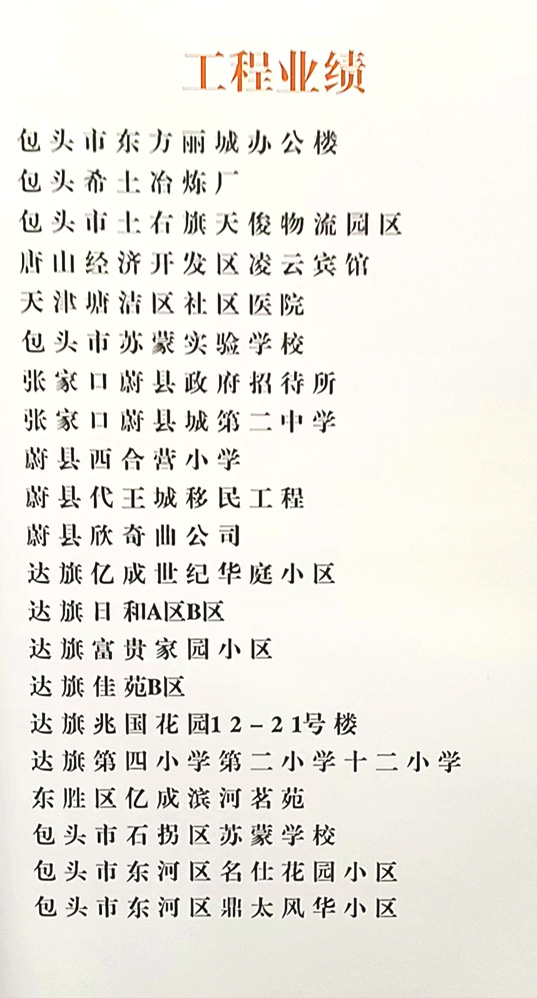 工程业绩
包头市东方丽城办公楼
包头希土冶炼厂
包头市土右旗天俊物流园区
唐山经济开发区凌云宾馆
天津塘洁区社区医院
包头市苏蒙实验学校
张家口蔚县政府招待所
张家口蔚县城第二中学
蔚县西合营小学
蔚县代王城移民工程
蔚县欣奇曲公司
达旗亿成世纪华庭小区
达旗日和A区B区
达旗富贵家园小区
达旗佳苑B区
达旗兆国花园12-21号楼
达旗第四小学第二小学十二小学
东胜区亿成滨河茗苑
包头市石拐区苏蒙学校
包头市东河区名仕花园小区
包头市东河区鼎太风华小区